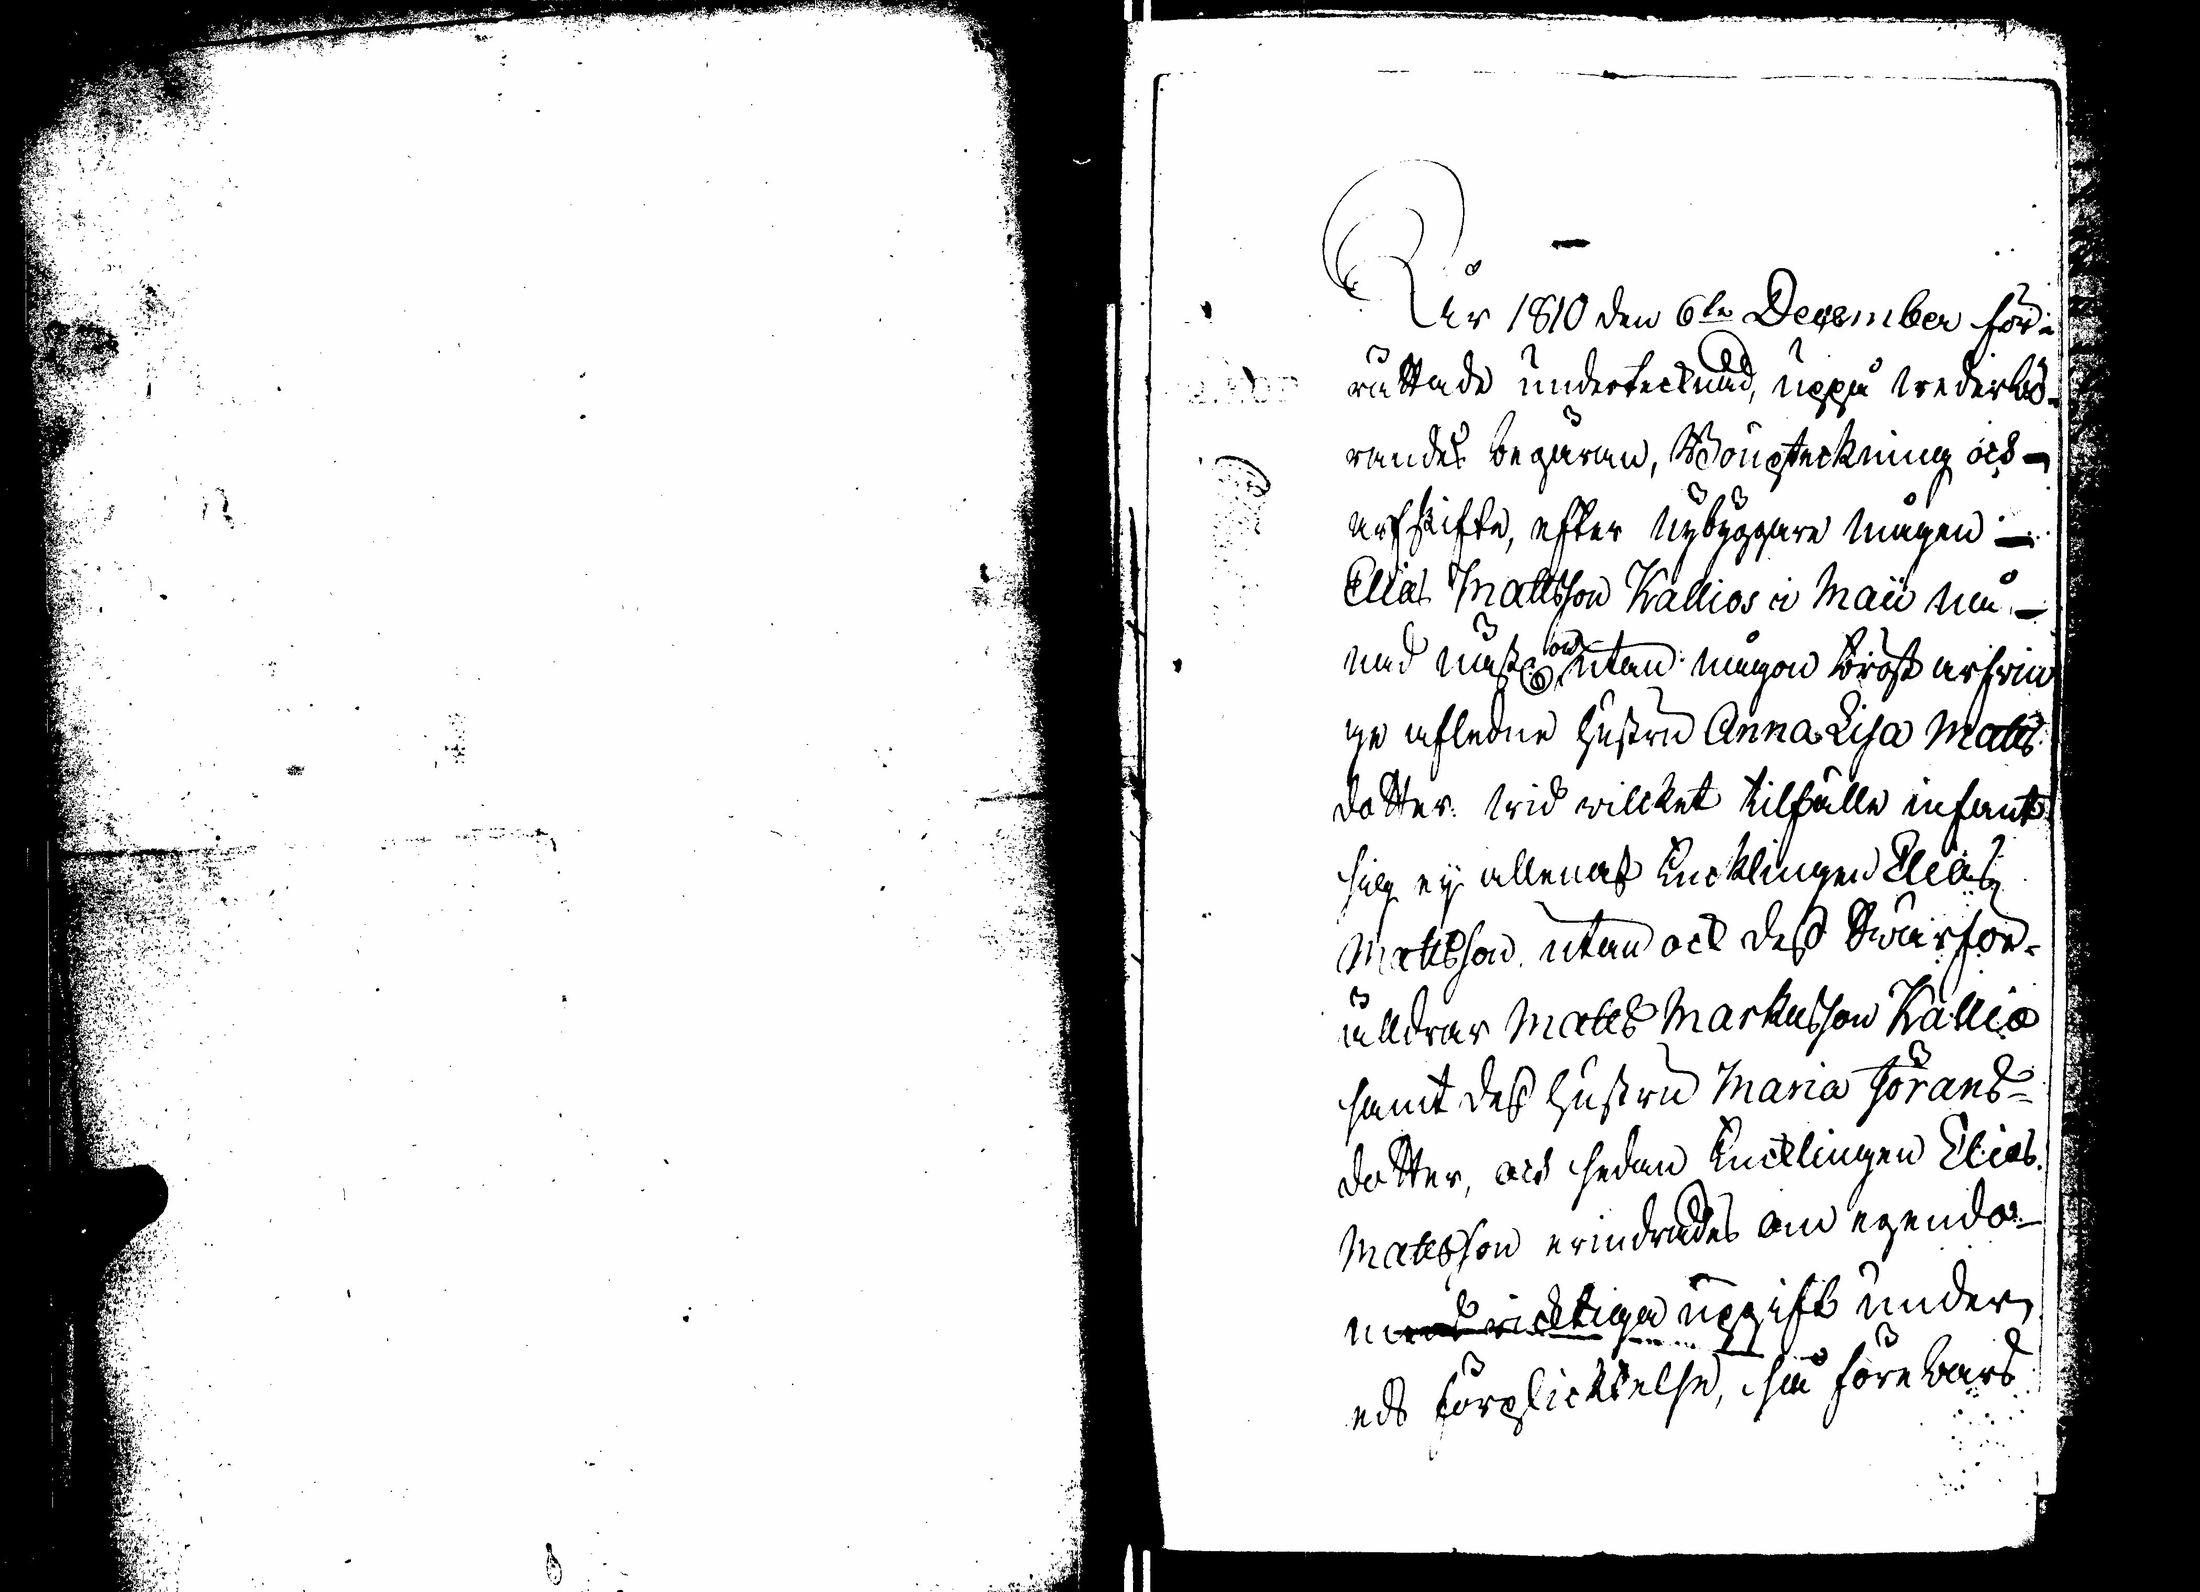 År 1810 den 6te December för-
rättade undertecknad, uppå wederbö-
randes begäran, Bouptekning och
arfskifte, efter Nybyggare mågen
Elias Mattsson Kallios i Maii må-
nad näst utan någon bröst arfwin
ge afledne hustru Anna Lisa Matts
dotter. wid wilcket tilfälle infant
sig ey allenast Encklingen Elias
Mattsson utan ock dess Swärför-
älldrar Matts Markusson Kallio
samt dess hustru Maria Jörans-
dotter, och sedan Encklingen Elias
Mattsson erindrades om egendo-
mens ricktiga uppgift under
eds förplicktelse, så förewars